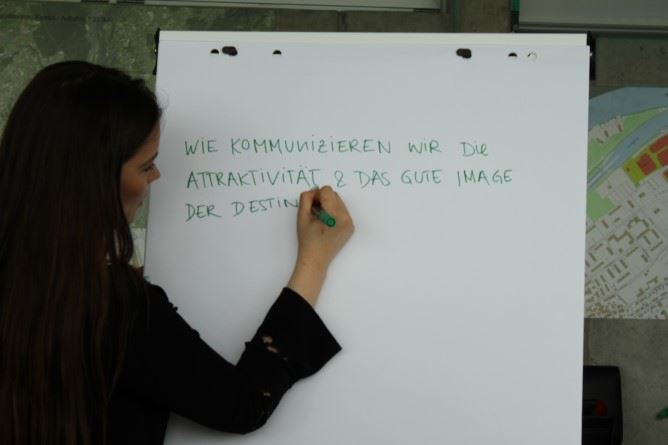 WIE KOMMUNIZIEREN WIR DIE
ATTRAKTIVITÄT & DAS GUTE IMAGE
DER DESTIN